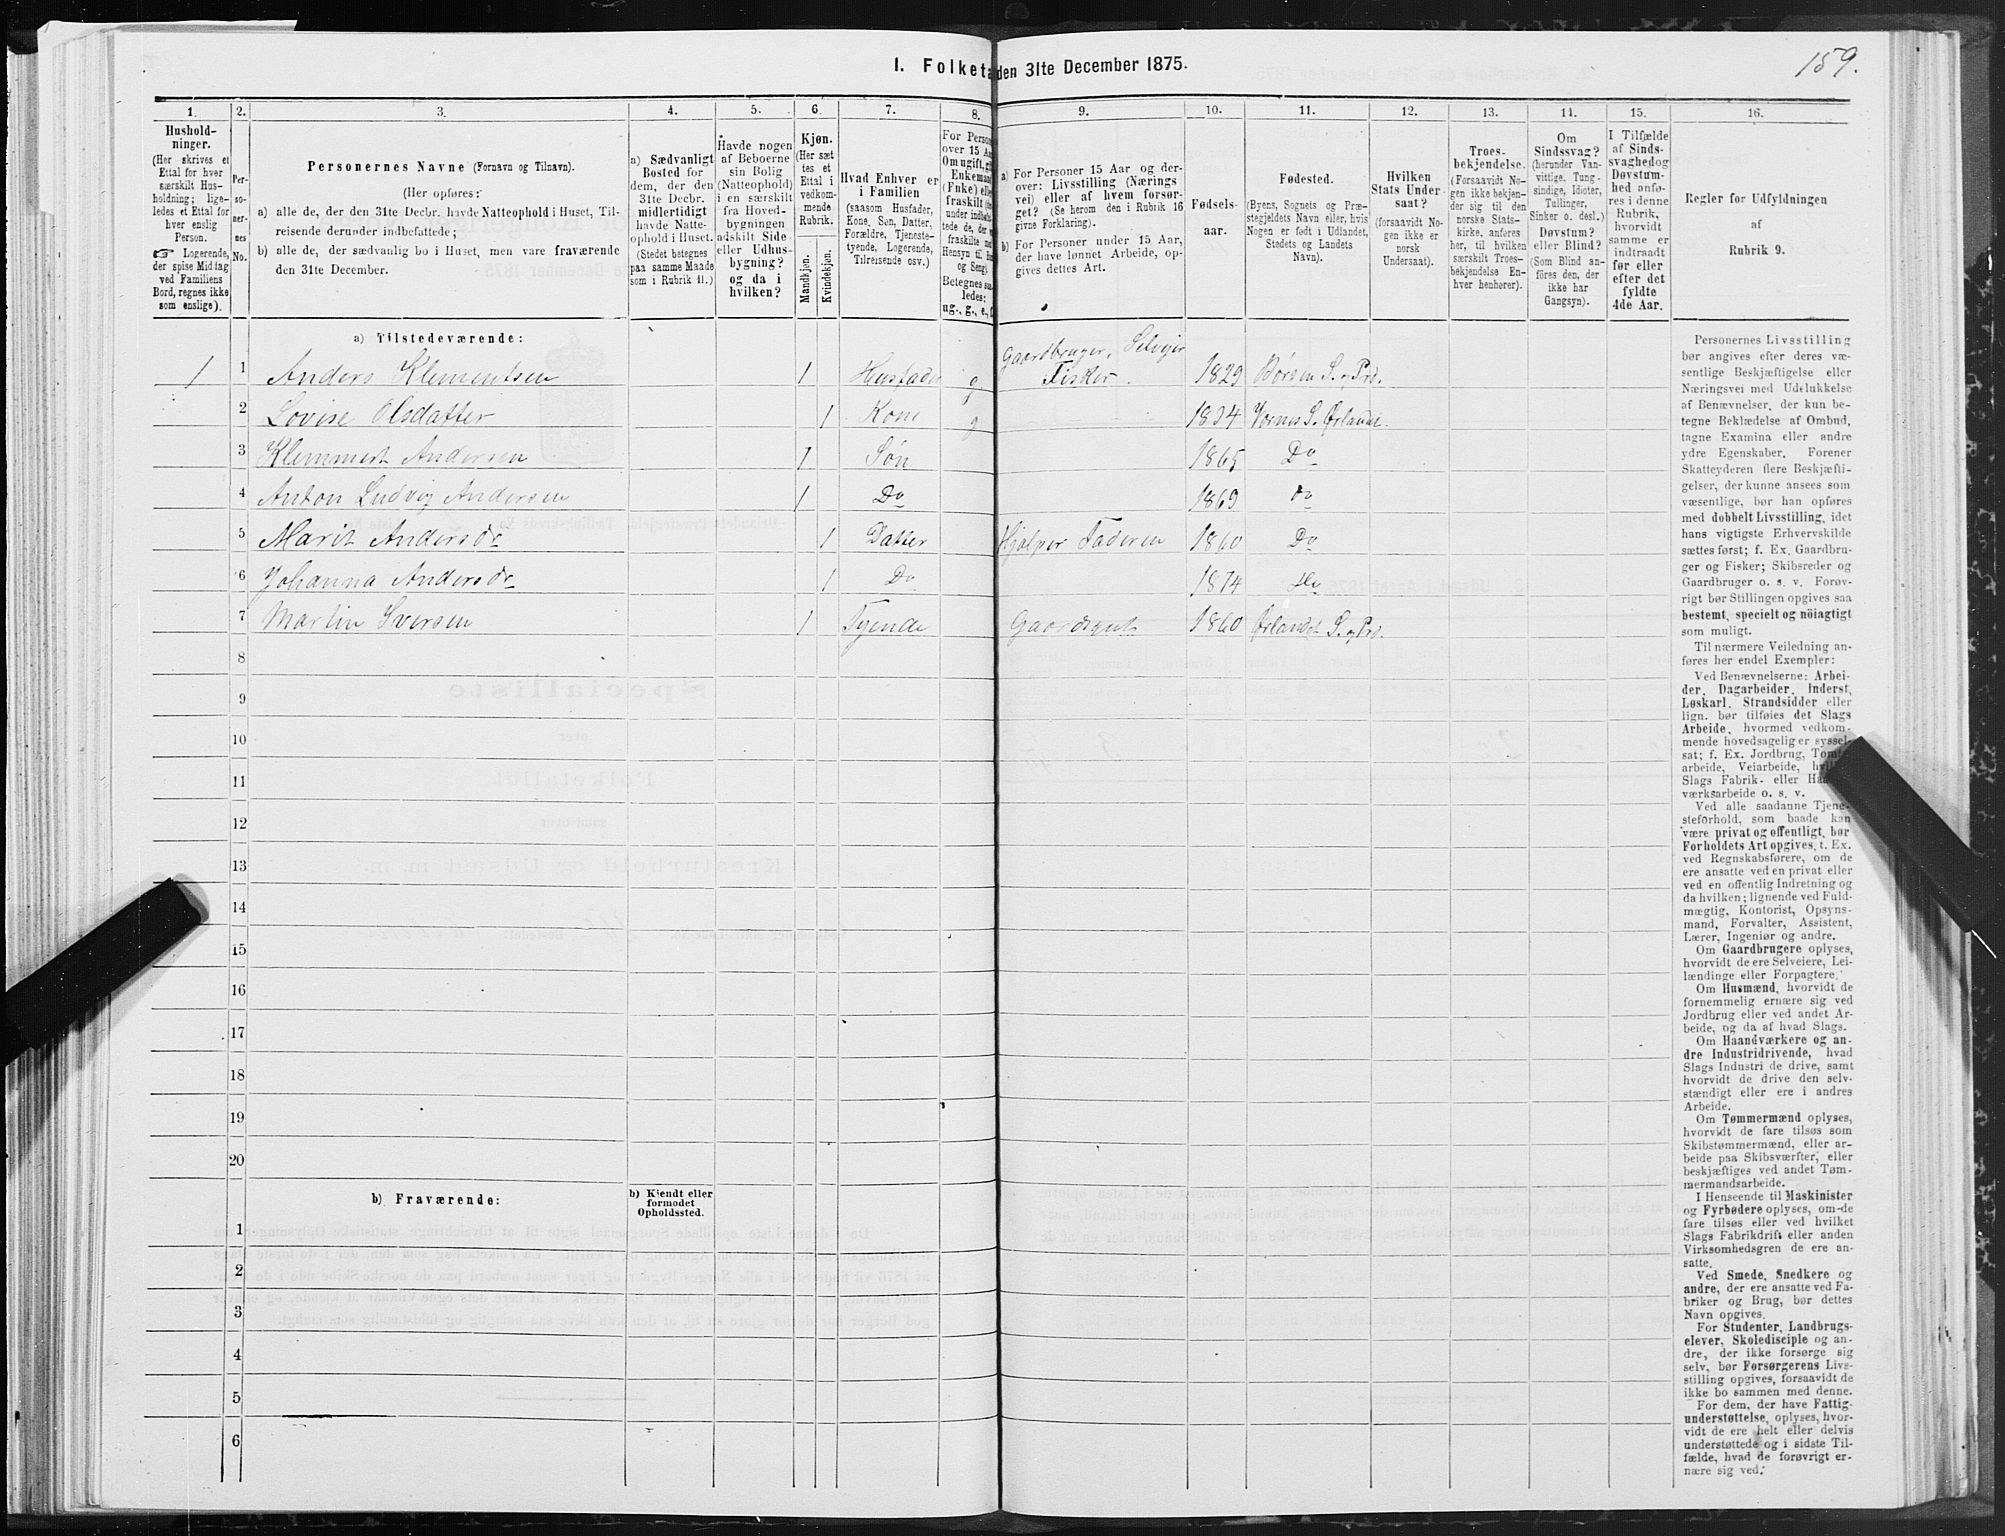 159.
I. Folketa den 31te December 1875.
1. 2. 3. 4. 5. 6. 7. 8. 9. 10. 11. 12. 13. 14. 15. 16.
Hushold-
ninger.
(Her skrives et
Ettal for hver
særskilt Hus-
holdning; lige-
ledes et Ettal for
hver enslig
Person.
☞ Logerende,
der spise Middag
ved Familiens
Bord, regnes ikke
som enslige).
Per-
so-
ner-
nes
No.
Personernes Navne (Fornavn og Tilnavn).
(Her opføres:
a) alle de, der den 31te Decbr. havde Natteophold i Huset, Til-
reisende derunder indbefattede;
b) alle de, der sædvanlig bo i Huset, men vare fraværende
den 31te December.
a) Sædvanligt
Bosted for
dem, der den
31te Decbr.
midlertidigt
havde Natte-
ophold i Huset.
(Stedet betegnes
paa samme Maade
som i Rubrik 11.)
Havde nogen
af Beboerne
sin Bolig
(Natteophold)
i en særskilt
fra Hoved-
bygningen
adskilt Side
eller Udhus-
bygning?
og da i
hvilken?
Kjøn.
(Her sæt
tes et
Ettal i
vedkom-
mende
Rubrik.
Mandkjøn.
Kvindekjøn.
Hvad Enhver er
i Familien
(saasom Husfader,
Kone, Søn, Datter,
Forældre, Tjeneste-
tyende, Logerende,
Tilreisende osv.)
For Person
over 15 Aar
Om ugift, gift
Enkemand
(Enke) elle
fraskilt
under indbefat
tede de, der
fraskilte med
Hensyn til Bo
og Seng).
Betegnes saa-
ledes:
ug., g., e., f.
a) For Personer 15 Aar og der-
over: Livsstilling (Nærings
vei) eller af hvem forsør-
get? (Se herom den i Rubrik 16
givne Forklaring).
b) For Personer under 15 Aar,
der have lønnet Arbeide, op-
gives dettes Art.
Fødsels-
aar.
Fødested.
(Byens, Sognets og Præ-
stegjeldets Navn eller, hvis
Nogen er født i Udlandet,
Stedets og Landets
Navn).
Hvilken
Stats Under-
saat?
(forsaavidt No-
gen ikke er
norsk
Undersaat).
Troes-
bekjendelse.
(Forsaavidt No-
gen ikke bekjen-
der sig til den
norske Stats-
kirke, anføres
her, til hvilken
særskilt Troes-
bekjendelse En-
hver henhører).
Om
Sindssvag?
(herunder Van-
vittige, Tung-
sindige, Idioter,
Tullinger,
Sinker o. desl.)
Døvstum?
eller Blind?
(Som Blind an-
føres den, der
ikke har
Gangsyn).
I Tilfælde
af Sinds-
svaghed og
Døvstum-
hed anfø-
res i denne
Rubrik,
hvorvidt
samme er
indtraadt
før eller
efter det
fyldte
4de Aar.
Regler for Udfyldningen
af
Rubrik 9.
a) Tilstedeværende:
1 1 Anders Klementsen 1 Husfader g Gaardbruger, Selveier Fisker. 1829 Børsen S. og Prd.
2 Lovise Olsdatter 1 Kone g 1834 Vernes S. Ørlandet.
3 Klemmert Andersen 1 Søn 1865 Do
4 Anton Ludvig Andersen 1 Do 1869 Do
5 Marit Andersdr 1 Datter Hjælper Faderen 1860 Do
6 Johanna Andersdr 1 Do 1874 Do
7 Martin Iversen 1 Tyende Gaardsgut 1860 Ørlandet S. og Prd.
8
9
10
11
12
13
14
15
16
17
18
19
20
b) Fraværende: b) Kjendt eller
formodet
Opholdssted.
1
2
3
4
5
6
Personernes Livsstilling
bør angives efter deres væ-
sentlige Beskjæftigelse eller
Næringsvei med Udelukkelse
af Benævnelser, der kun be-
tegne Beklædelse af Ombud,
tagne Examina eller andre
ydre Egenskaber. Forener
Skatteyderen flere Beskjæfti-
gelser, der kunne ansees som
væsentlige, bør han opføres
med dobbelt Livsstilling, idet
hans vigtigste Erhvervskilde
sættes først; f. Ex. Gaardbru-
ger og Fisker; Skibsreder og
Gaardbruger o. s. v. Forøv-
rigt bør Stillingen opgives saa
bestemt, specielt og nöiagtigt
som muligt.
Til nærmere Veiledning an-
føres her endel Exempler:
Ved Benævnelserne: Arbei-
der, Dagarbeider, Inderst,
Løskarl, Strandsidder eller
lign. bør tilføies det Slags
Arbeide, hvormed vedkom-
mende hovedsagelig er syssel-
sat; f. Ex. Jordbrug, Tomte-
arbeide, Veiarbeide, hvilket
Slags Fabrik- eller Haand-
værksarbeide o. s. v.
Ved alle saadanne Tjene-
steforhold, som baade kan
være privat og offentligt, bør
Forholdets Art opgives, t. Ex.
ved Regnskabsførere, om de
ere ansatte ved en privat eller
ved en offentlig Indretning og
da hvilken; lignende ved Fuld-
mægtig, Kontorist, Opsyns-
mand, Forvalter, Assistent,
Lærer, Ingeniør og andre.
Om Gaardbrugere oplyses,
hvorvidt de ere Selveiere, Lei-
lændinge eller Forpagtere.
Om Husmænd, hvorvidt de
fornemmelig ernære sig ved
Jordbrug eller ved andet Ar-
beide, og da af hvad Slags.
Om Haandværkere og an-
dre Industridrivende, hvad
Slags Industri de drive, samt
hvorvidt de drive den selv-
stændigt eller ere i andres
Arbeide.
Om Tømmermænd oplyses,
hvorvidt de fare tilsøs som
Skibstømmermænd, eller ar-
beide paa Skibsværfter, eller
beskjæftiges ved andet Tøm-
mermandsarbeide.
I Henseende til Maskinister
og Fyrbødere oplyses, om de
fare tilsøs eller ved hvilket
Slags Fabrikdrift eller anden
Virksomhedsgren de ere an-
satte.
Ved Smede, Snedkere og
andre, der ere ansatte ved Fa-
briker og Brug, bør dettes
Navn opgives.
For Studenter, Landbrugs-
elever, Skoledisciple og an-
dre, der ikke forsørge sig
selv, bør Forsørgerens Livs-
stilling opgives, forsaavidt de
ikke bo sammen med denne.
For dem, der have Fattig-
understøttelse, oplyses, hvor-
vidt de ere helt eller delvis
understøttede og i sidste Til-
fælde, hvad de forøvrigt er-
nære sig ved.